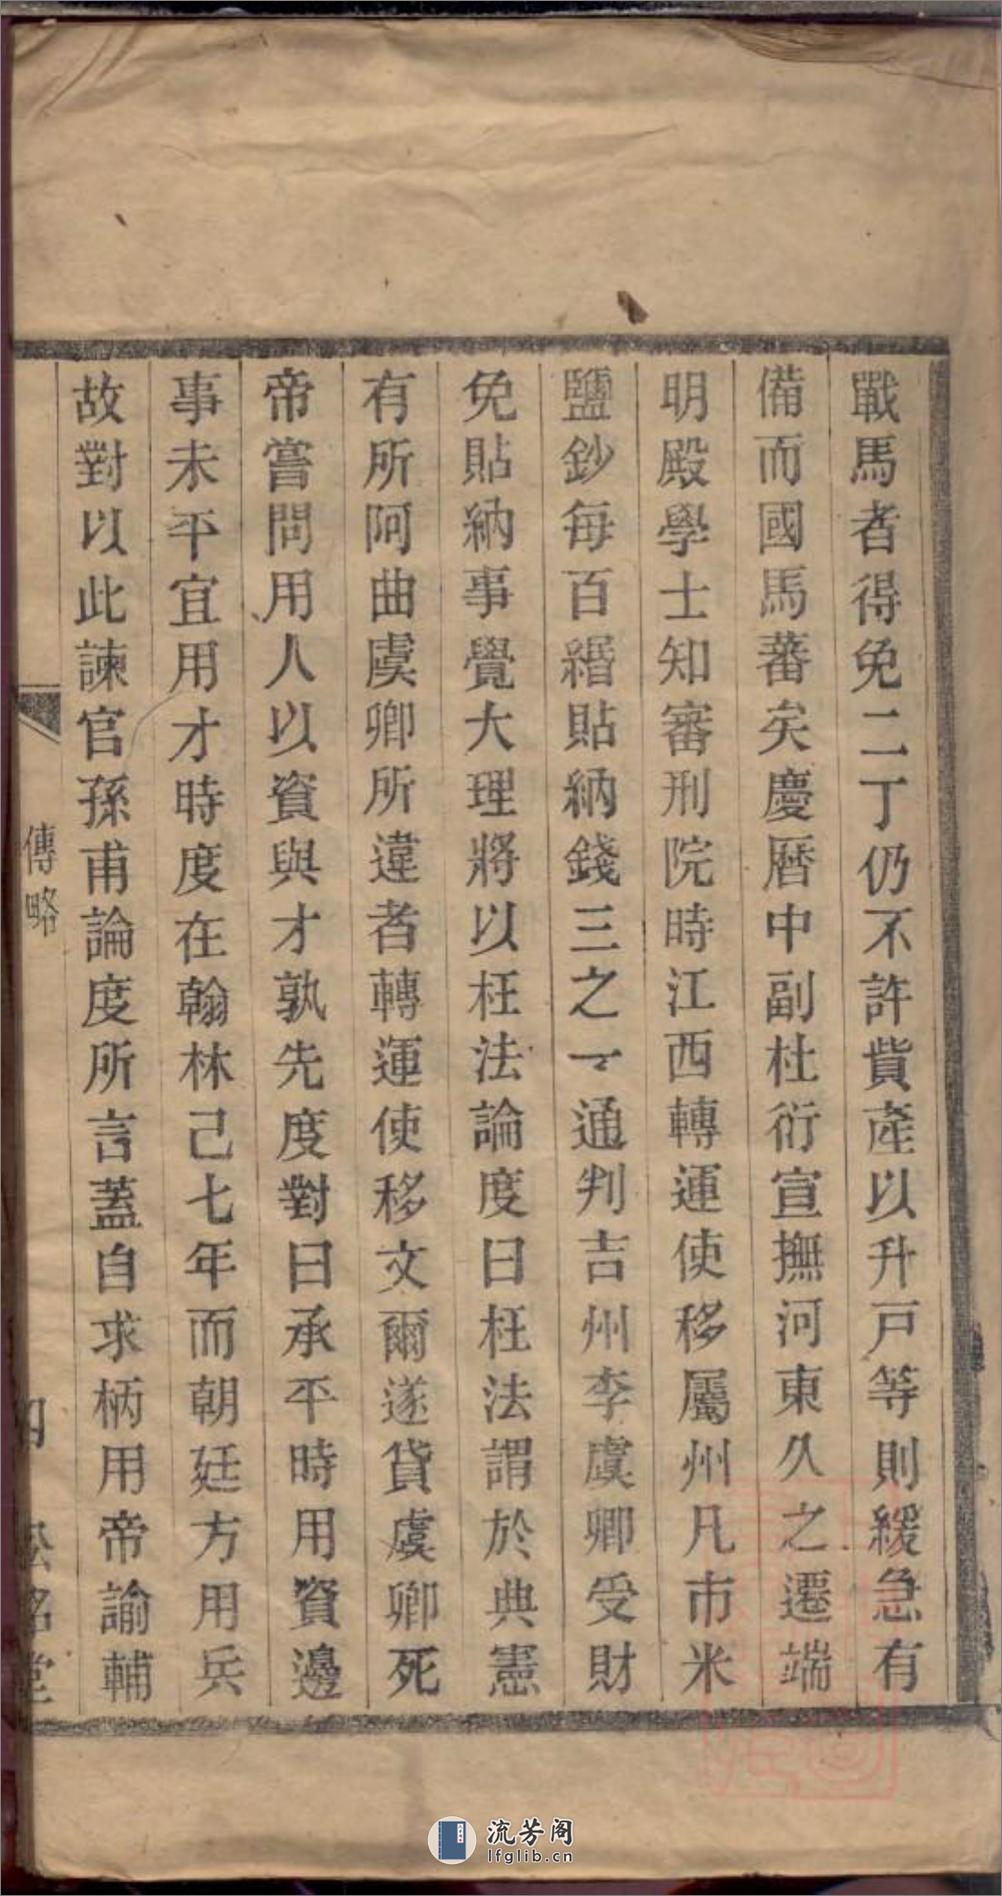 戰馬者得免二丁仍不許貲產以升戸等則緩急有
備而國馬蕃矣慶暦中副杜衍宣撫河東久之遷端
明殿學士知審刑院時江西轉運使移屬州凡市米
鹽鈔每百緡貼納錢三之一通判吉州李虞卿受財
免貼納事覺大理將以枉法論度曰枉法謂於典憲
有所阿曲虞卿所違者轉運使移文爾遂貸虞卿死
帝嘗問用人以資與才孰先度對曰承平時用資邊
事未平宜用才時度在翰林己七年而朝廷方用兵
故對以此諫官孫甫論度所言蓋自求柄用帝諭輔
傳略
四
松銘堂
流芳阁
lfglib.cn